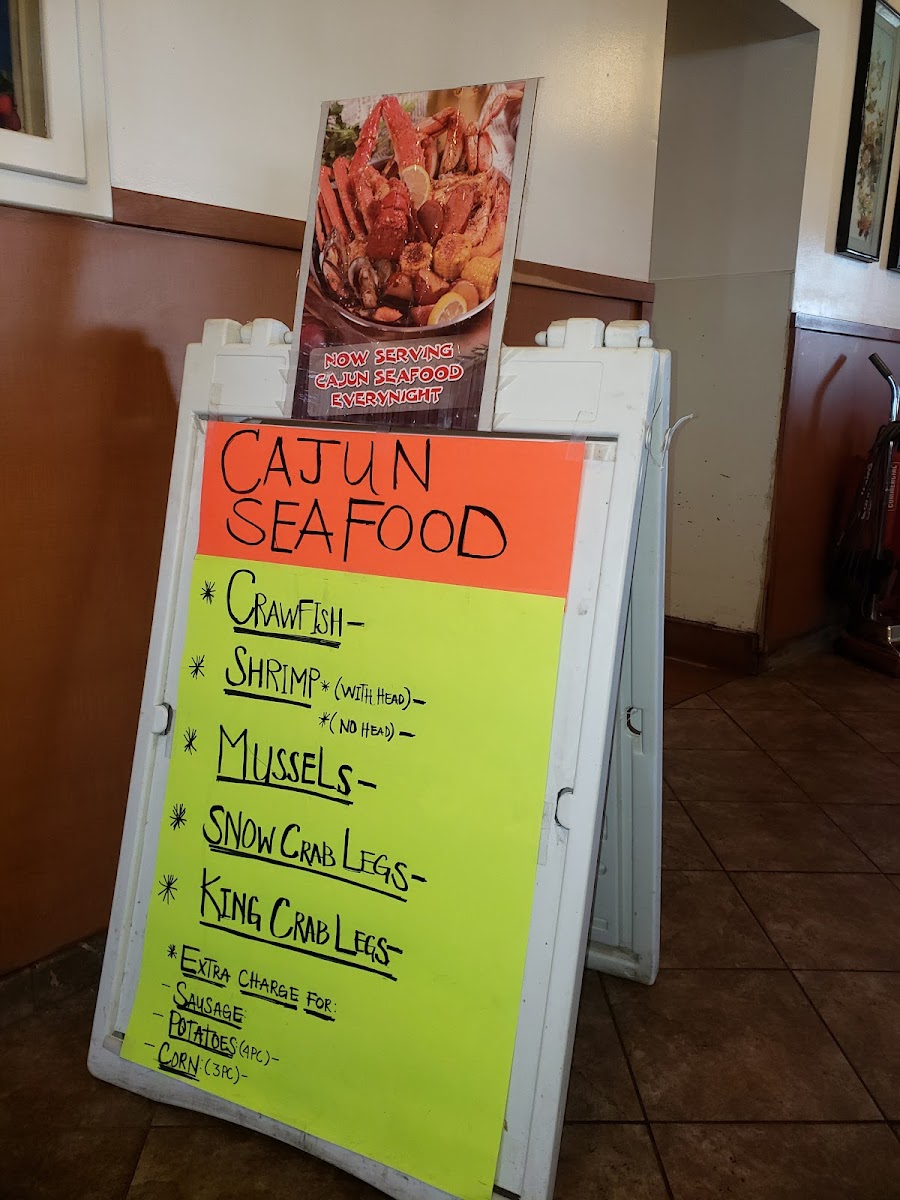 NOW SERVING
CAJUN SEAFOOD
EVERYNIGHT
CAJUN
SEAFOOD
* CRAWFISH-
* SHRIMP *(WITH HEAD)-
*(NO HEAD)-
* MUSSELS-
* SNOW CRAB LEGS-
* KING CRAB LEGS-
*EXTRA CHARGE FOR:
- SAUSAGE:
- POTATOES:(4PC)-
- CORN:(3PC)-
COMMERCIAL